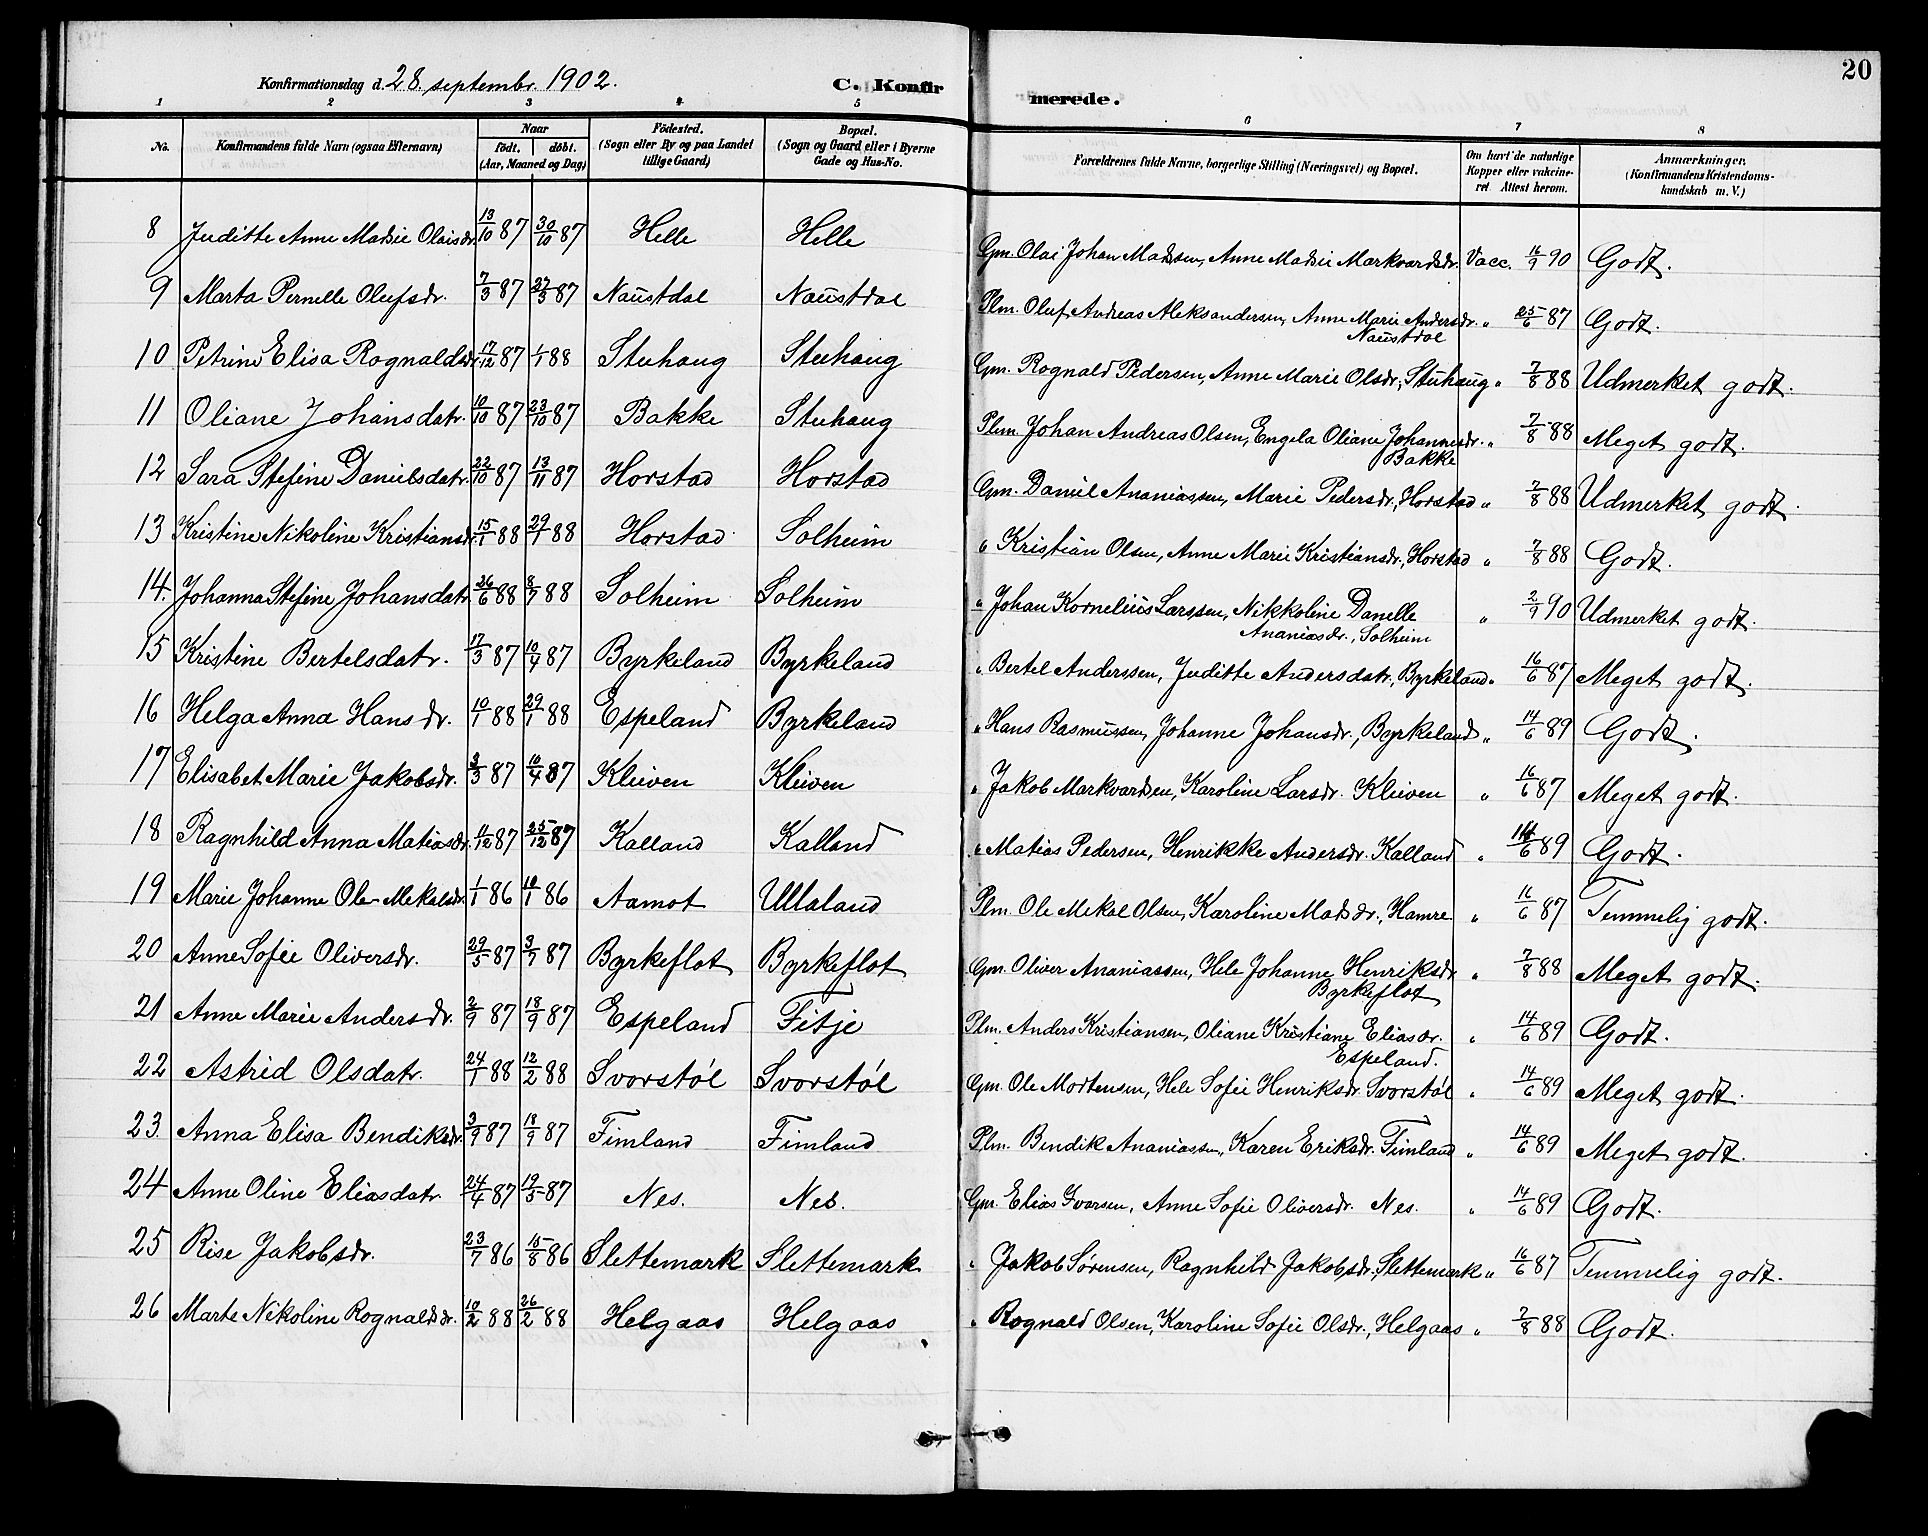 20
Konfirmationsdag d. 28. septembr. 1902. C. Konfirmerede.
1 2 3 4 5 6 7 8
No. Konfirmandens fulde Navn (ogsaa Efternavn) Naar født. døbt. (Aar, Maaned og Dag) Fødested. (Sogn eller By og paa Landet tillige Gaard) Bopæl. (Sogn og Gaard eller i Byerne Gade og Hus-No. Forældrenes fulde Navne, borgerlige Stilling (Næringsvei) og Bopæl. Om havt de naturlige Kopper eller vakcineret. Attest herom. Anmærkninger. (Konfirmandens Kristendomskundskab m. V.)
8 Juditte Anne Madsie Olaisdr. 13/10 87 30/10 87 Helle Helle Gm. Olai Johan Madssen, Anne Madsie Markvardsdr. Vacc. 16/9 90 Godt.
9 Marta Pernelle Olufsdr. 7/3 87 27/3 87 Naustdal Naustdal Plm. Oluf Andreas Aleksandersen, Anne Marie Andersdr. " 25/6 87 Godt.
Naustdal
10 Petrine Elisa Rognaldsdr. 17/12 87 1/1 88 Stuhaug Stuhaug Gm. Rognald Pedersen, Anne Marie Olsdr, Stuhaug " 7/8 88 Udmerket godt.
11 Oliane Johansdatr. 10/10 87 23/10 87 Bakke Stuhaug Plm. Johan Andreas Olsen, Engela Oliane Johannesdr. " 7/8 88 Meget godt.
Bakke
12 Sara Stefine Danielsdatr. 22/10 87 13/11 87 Horstad Horstad Gm. Daniel Ananiassen, Marie Pedersdr, Horstad " 7/8 88 Udmerket godt.
13 Kristine Nikoline Kristiansdr. 15/1 88 29/1 88 Horstad Solheim " Kristian Olsen, Anne Marie Kristiansdr., Horstad " 7/8 88 Godt.
14. Johanna Stefine Johansdatr. 26/6 88 8/7 88 Solheim Solheim " Johan Kornelius Larssen, Nikkoline Danelle " 2/9 90 Udmerket godt.
Ananiasdr., Solheim
15 Kristine Bertelsdatr. 17/3 87 10/4 87 Byrkeland Byrkeland " Bertel Anderssen, Juditte Andersdatr, Byrkeland " 16/6 87 Meget godt.
16 Helga Anna Hansdr. 10/1 88 29/1 88 Espeland Byrkeland " Hans Rasmussen, Johanne Johansdr., Byrkeland " 14/6 89 Godt.
17 Elisabet Marie Jakobsdr. 3/3 87 10/4 87 Kleiven Kleiven " Jakob Markvardsen, Karoline Larsdr. Kleiven " 16/6 87 Meget godt.
18 Ragnhild Anna Matiasdr. 11/12 87 25/12 87 Kalland Kalland " Matias Pedersen, Henrikke Andersdr. Kalland " 14/6 89 Godt.
19 Marie Johanne Ole-Mekalsdr. 1/1 86 10/1 86 Aamot Ullaland Plm. Ole Mekal Olsen, Karoline Madsdr., Hamre " 16/6 87 Temmelig godt.
20 Anne Sofie Oliversdr. 29/5 87 3/7 87 Byrkeflot Byrkeflot Gm. Oliver Ananiassen, Hele Johanne Henriksdr " 7/8 88 Meget godt.
Byrkeflot
21 Anne Marie Andersdr. 2/9 87 18/9 87 Espeland Fitje Plm. Anders Kristiansen, Oliane Kristiane Eliasdr. " 14/6 89 Godt.
Espeland.
22 Astrid Olsdatr. 24/1 88 12/2 88 Svorstøl Svorstøl Gm. Ole Mortensen, Hele Sofie Henriksdr. Svorstøl " 14/6 89 Meget godt.
23. Anna Elisa Bendiksdr. 3/9 87 18/9 87 Fimland Fimland Plm. Bendik Ananiassen, Karen Eriksdr. Fimland " 14/6 89 Meget godt.
24 Anne Oline Eliasdatr. 24/4 87 19/5 87 Nes. Nes. Gm. Elias Ivarsen, Anne Sofie Oliversdr. Nes. " 14/6 89 Godt.
25 Rise Jakobsdr. 23/7 86 15/8 86 Slettemark Slettemark " Jakob Sørensen, Ragnhild Jakobsdr, Slettemark " 16/6 87 Temmelig godt.
26 Marte Nikoline Rognaldsdr. 10/2 88 26/2 88 Helgaas Helgaas " Rognald Olsen, Karoline Sofie Olsdr., Helgaas " 7/8 88 Godt.